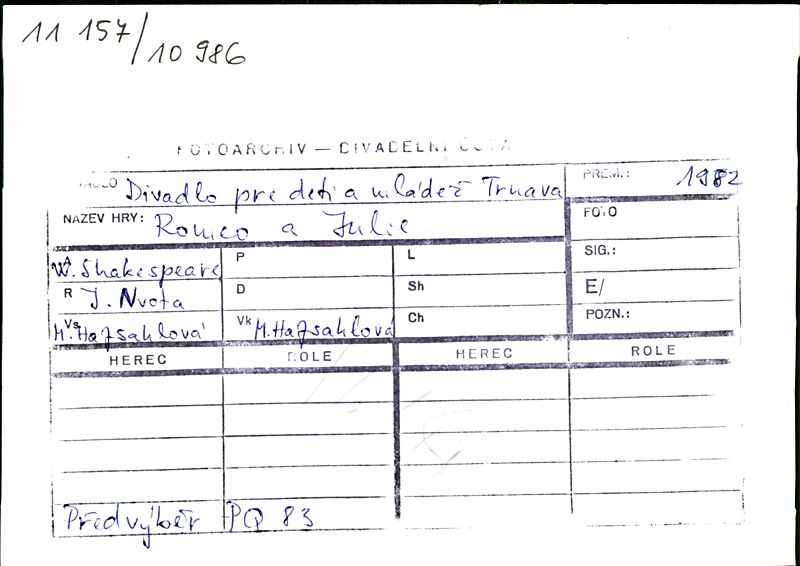 11 157/10 986
FOTOARCHIV — DIVADELNÍ
Divadlo pre deti a mládež Trnava
PREM.: 1982
NÁZEV HRY: Romeo a Julie
FOTO
A W. Shakespeare
P
L
SIG.:
R J. Nvota
D
Sh
E/
Vs M. Hafsahlová
Vk M. Hafsahlová
Ch
POZN.:
HEREC ROLE HEREC ROLE
Předvýběr PQ 83